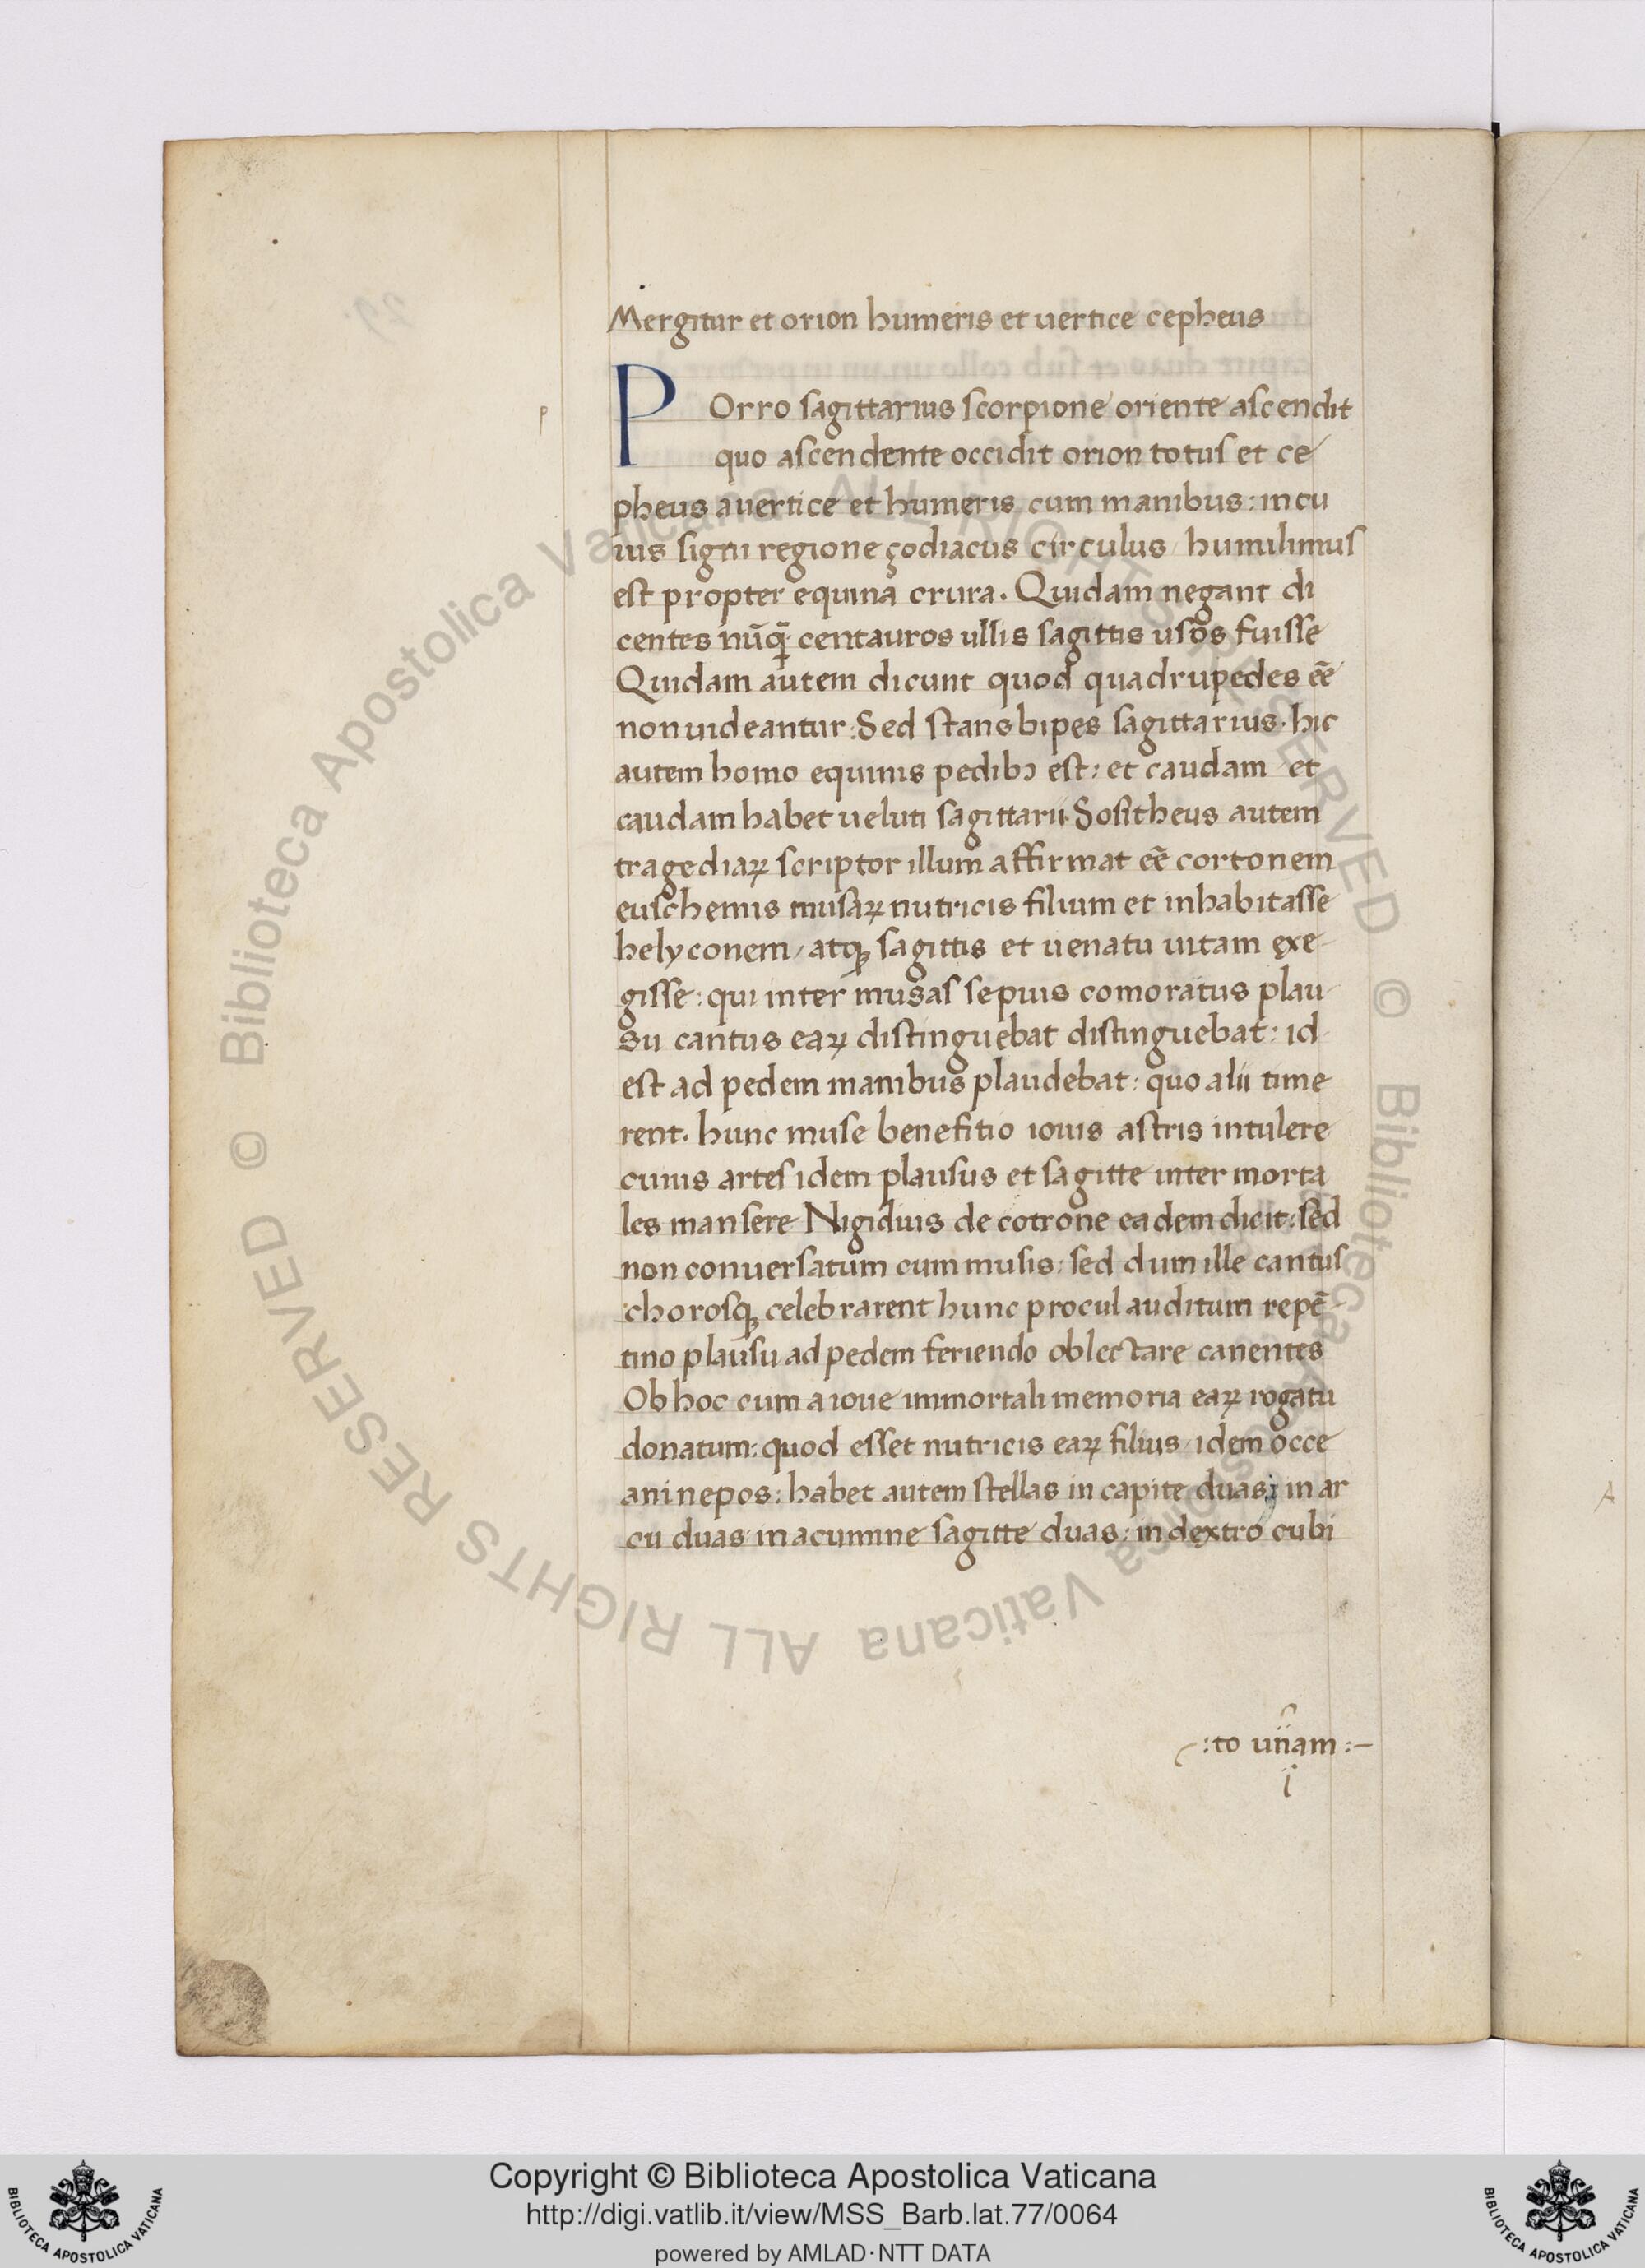 Mergitur et orion humeris et uertice cepheus
POrro sagittarius scorpione oriente ascendit
quo ascendente occidit orion totus et ce
pheus a uertice et humeris cum manibus: in cu
ius signi regione çodiacus circulus / humilimus
est propter equina crura. Quidam negant di
centes nūq̄ centauros ullis sagittis usos fuisse
Quidam autem dicunt quod quadrupedes eē
non uideantur: Sed stans bipes sagittarius. hic
autem homo equinis pedibꝫ est: et caudam et
caudam habet ueluti sagittarii. Sositheus autem
tragediaꝝ scriptor illum affirmat eē cortonem
euschemis musaꝝ nutricis filium et inhabitasse
helyconem / atqꝫ sagittis et uenatu uitam exe
gisse: qui inter musas sepius comoratus plau
su cantus eaꝝ distinguebat distinguebat: id
est ad pedem manibus plaudebat: quo alii time
rent. hunc muse benefitio iouis astris intulere
cuius artes idem plausus et sagitte inter morta
les mansere Nigidius de cotrone eadem dicit: sed
non conuersatum cum musis: sed dum ille cantus
chorosqꝫ celebrarent hunc procul auditum repē-
tino plausu ad pedem feriendo oblectare canentes
Ob hoc eum a ioue immortali memoria eaꝝ rogatu
donatum: quod esset nutricis eaꝝ filius / idem occe
ani nepos: habet autem stellas in capite duas; in ar
cu duas in acumine sagitte duas: in dextro cubi
:to unam :-
P
Copyright © Biblioteca Apostolica Vaticana
http://digi.vatlib.it/view/MSS_Barb.lat.77/0064
powered by AMLAD·NTT DATA
BIBLIOTECA APOSTOLICA VATICANA
BIBLIOTECA APOSTOLICA VATICANA
© Biblioteca Apostolica Vaticana ALL RIGHTS RESERVED © Biblioteca Apostolica Vaticana ALL RIGHTS RESERVED